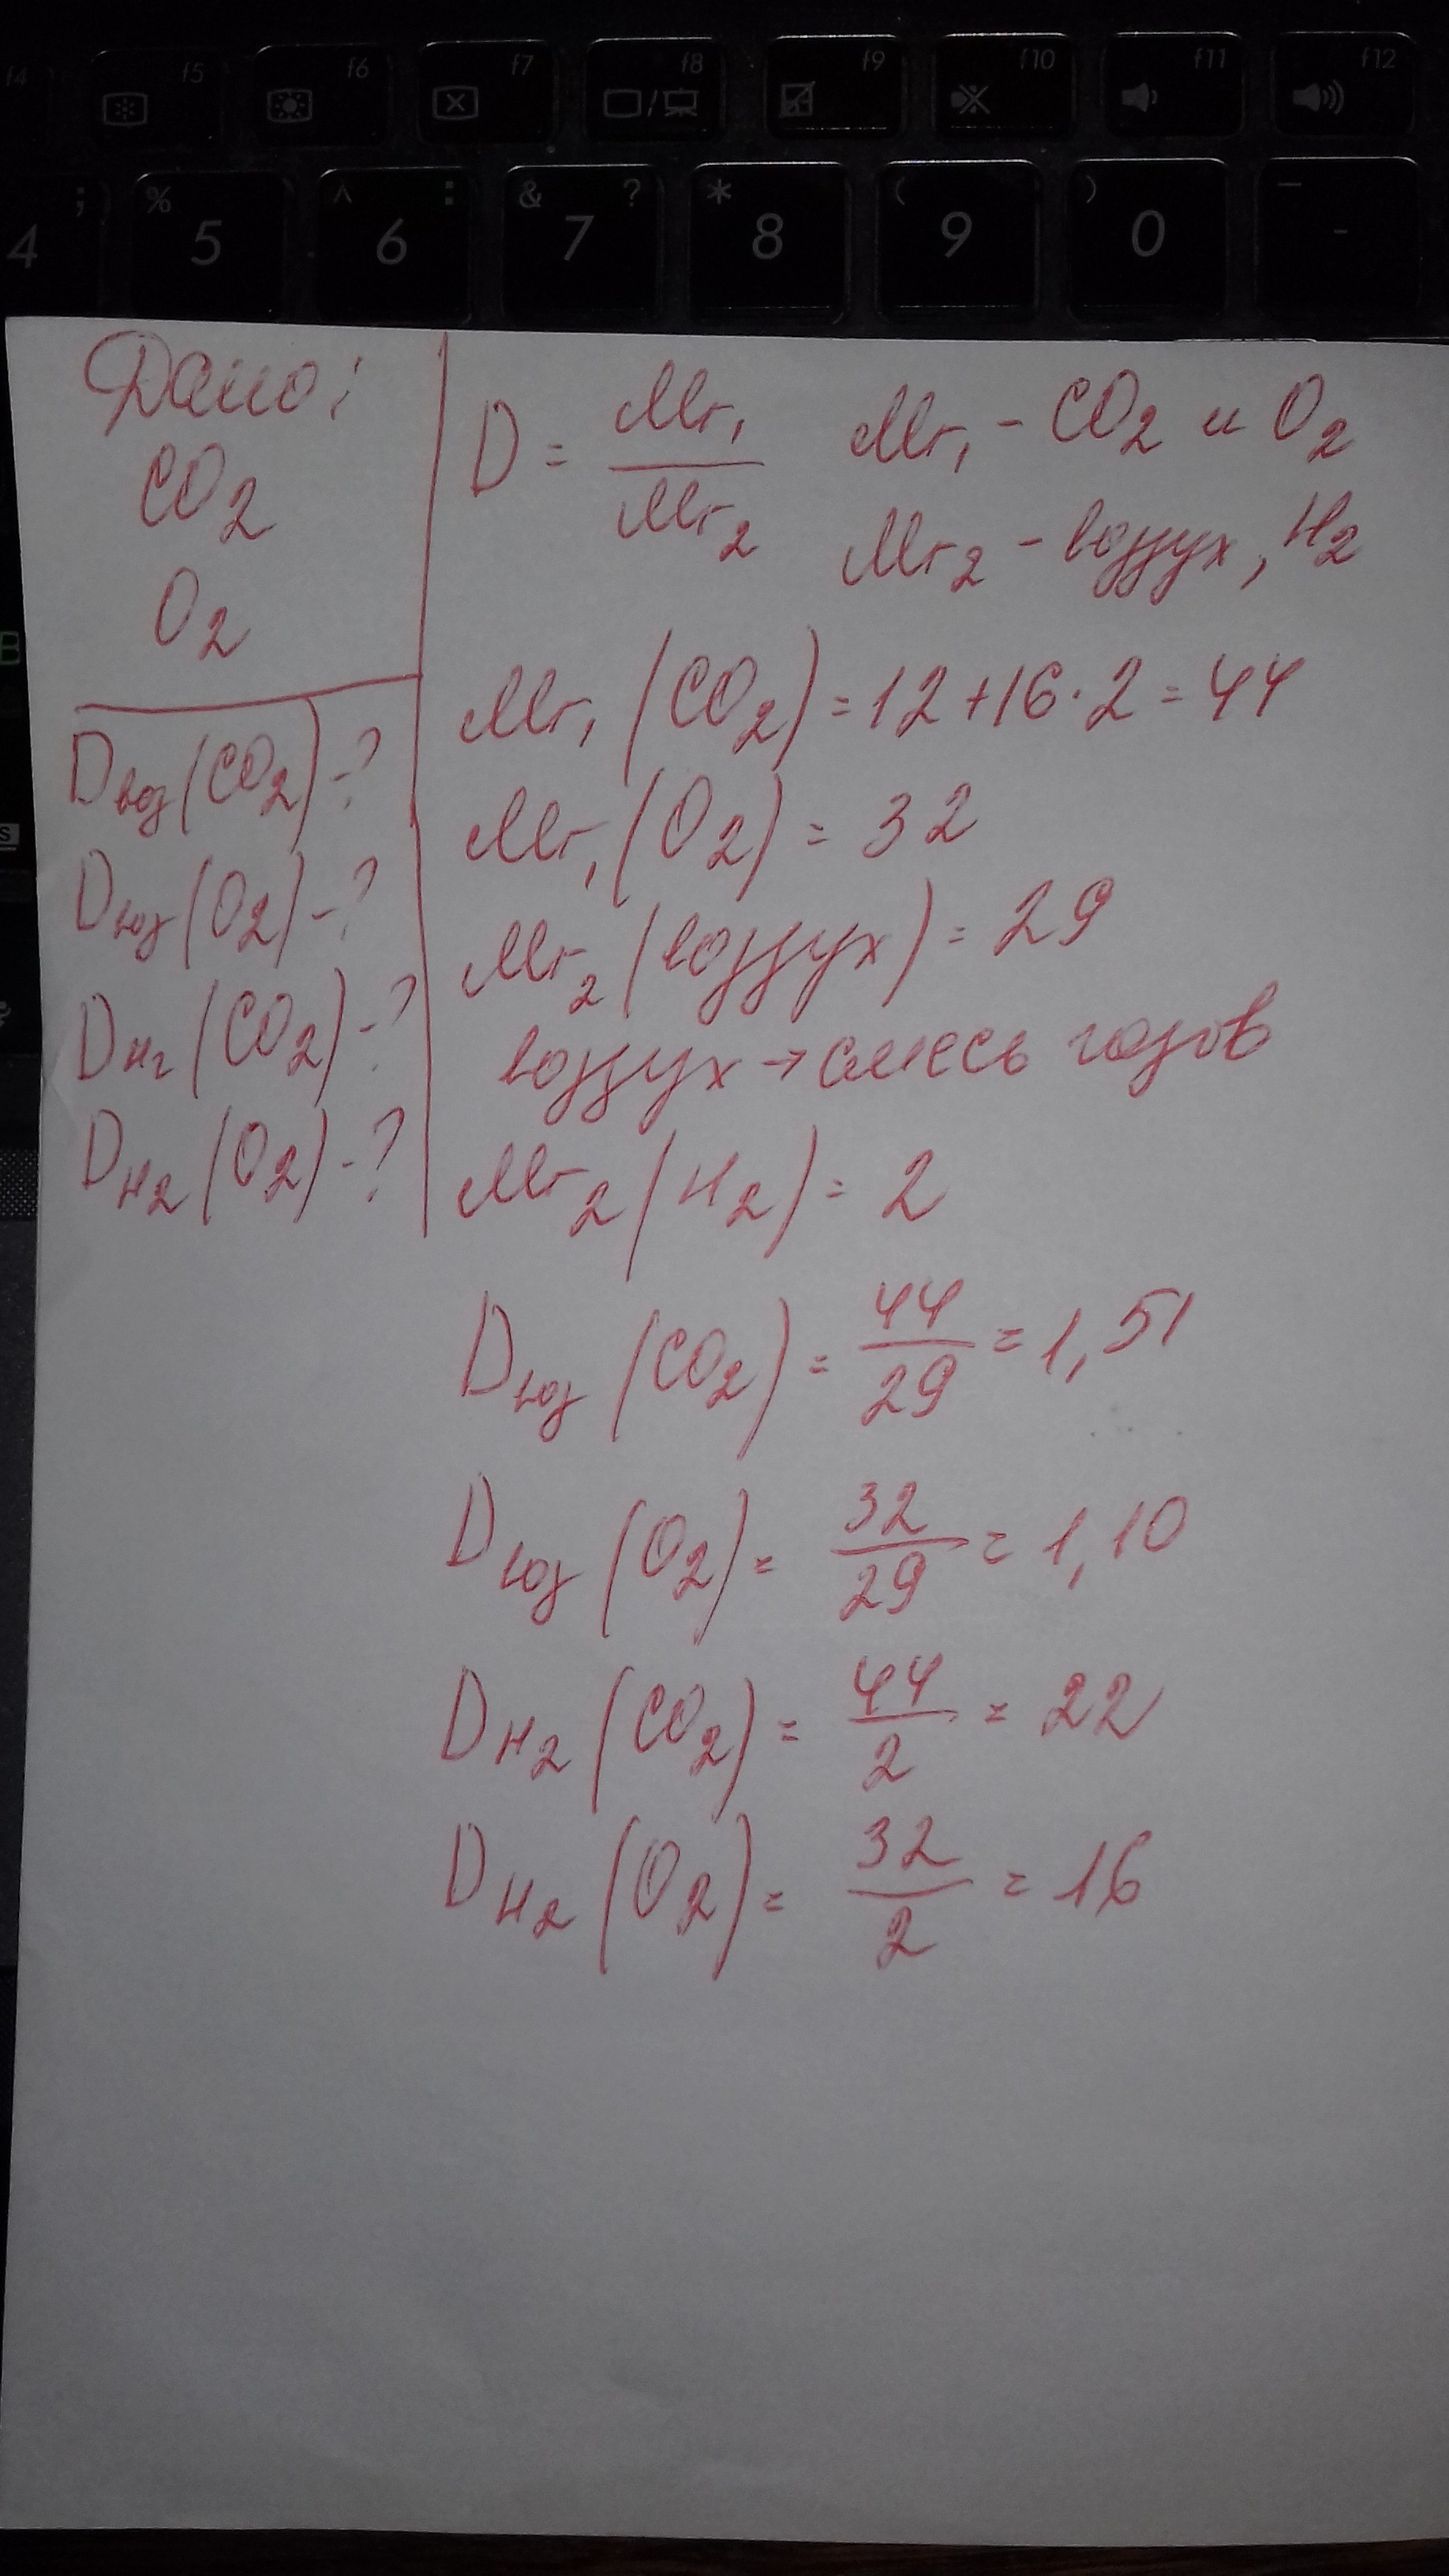 f4 f5 f6 f7 f8 f9 f10 f11 f12
4 ; % 5 ^ 6 : & 7 ? * 8 ( 9 ) 0 _ -
Дано:
CO2
O2
Dвоз(CO2)-?
Dвоз(O2)-?
DH2(CO2)-?
DH2(O2)-?
D = Mr1/Mr2 Mr1 - CO2 и O2
Mr2 - воздух, H2
Mr1(CO2) = 12+16·2 = 44
Mr1(O2) = 32
Mr2(воздух) = 29
воздух → смесь газов
Mr2(H2) = 2
Dвоз(CO2) = 44/29 = 1,51
Dвоз(O2) = 32/29 = 1,10
DH2(CO2) = 44/2 = 22
DH2(O2) = 32/2 = 16